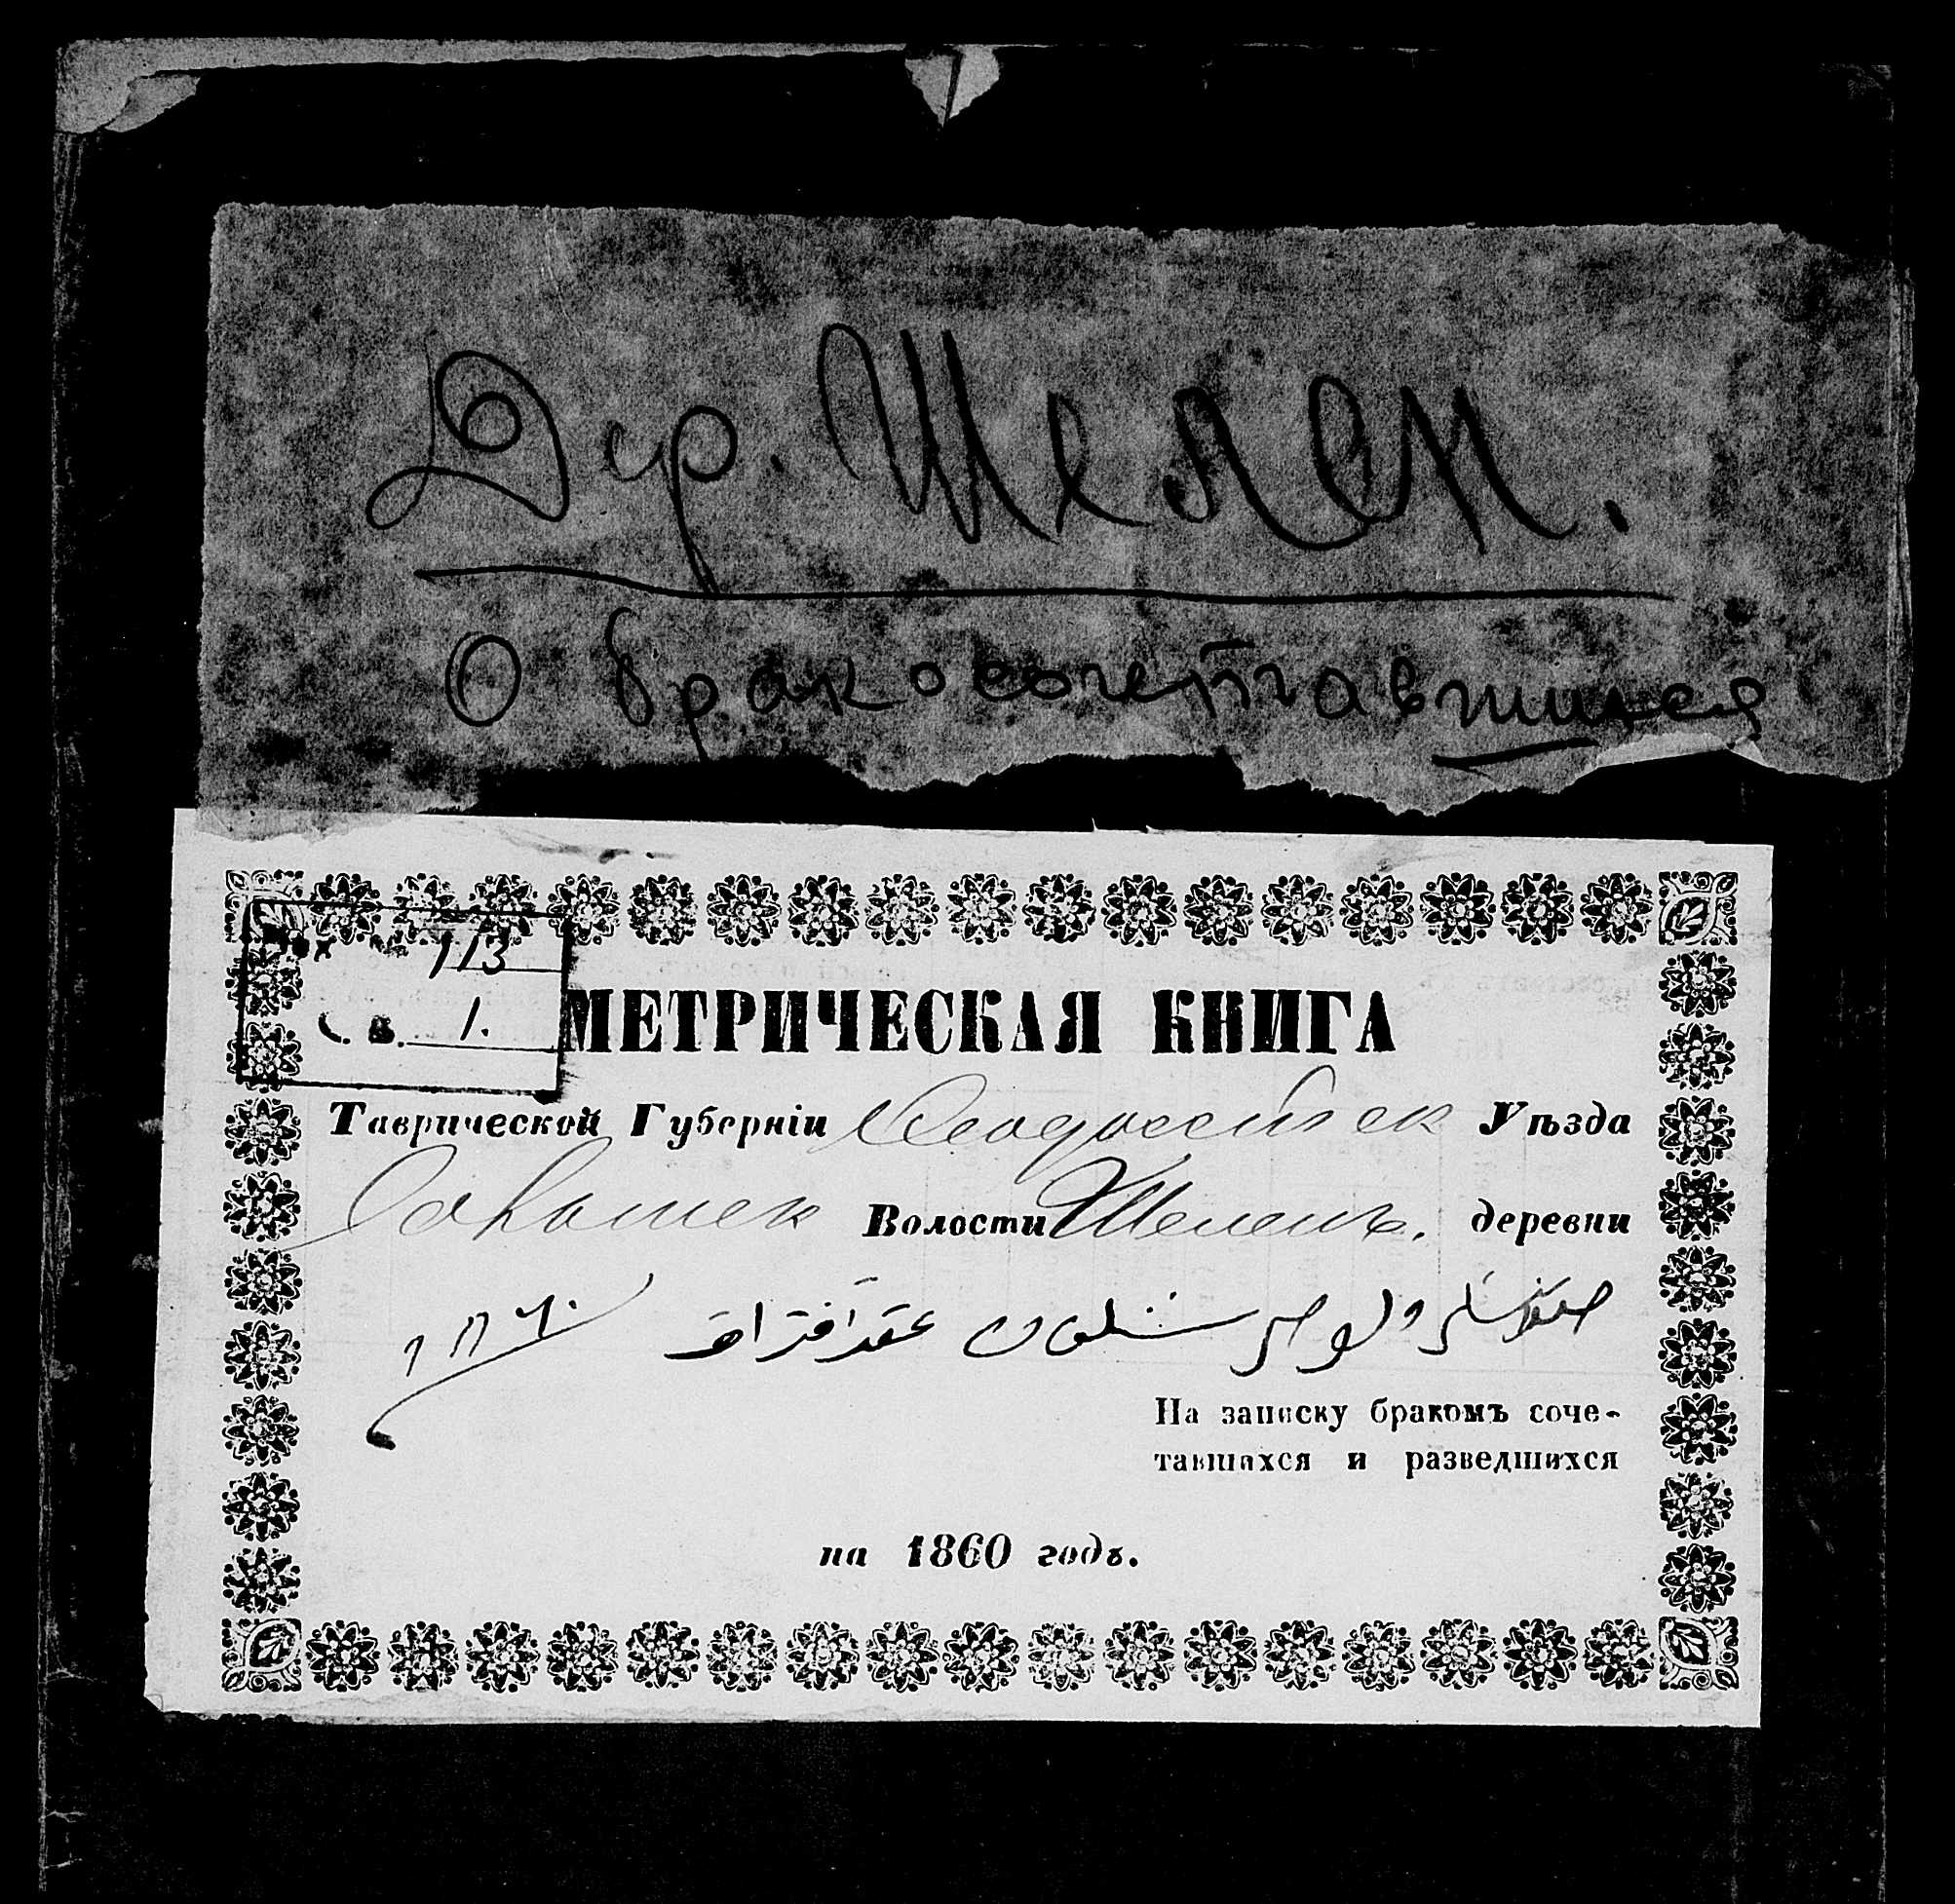 Дер. Шелен.
О бракосочетавшихся
113
С. в. 1.
МЕТРИЧЕСКАЯ КНИГА
Таврической Губерніи Ѳеодосійск Уѣзда
Волости Шеленъ. деревни
عقد افتراق ١٨٦٠
На записку бракомъ соче-
тавшихся и разведшихся
на 1860 годъ.